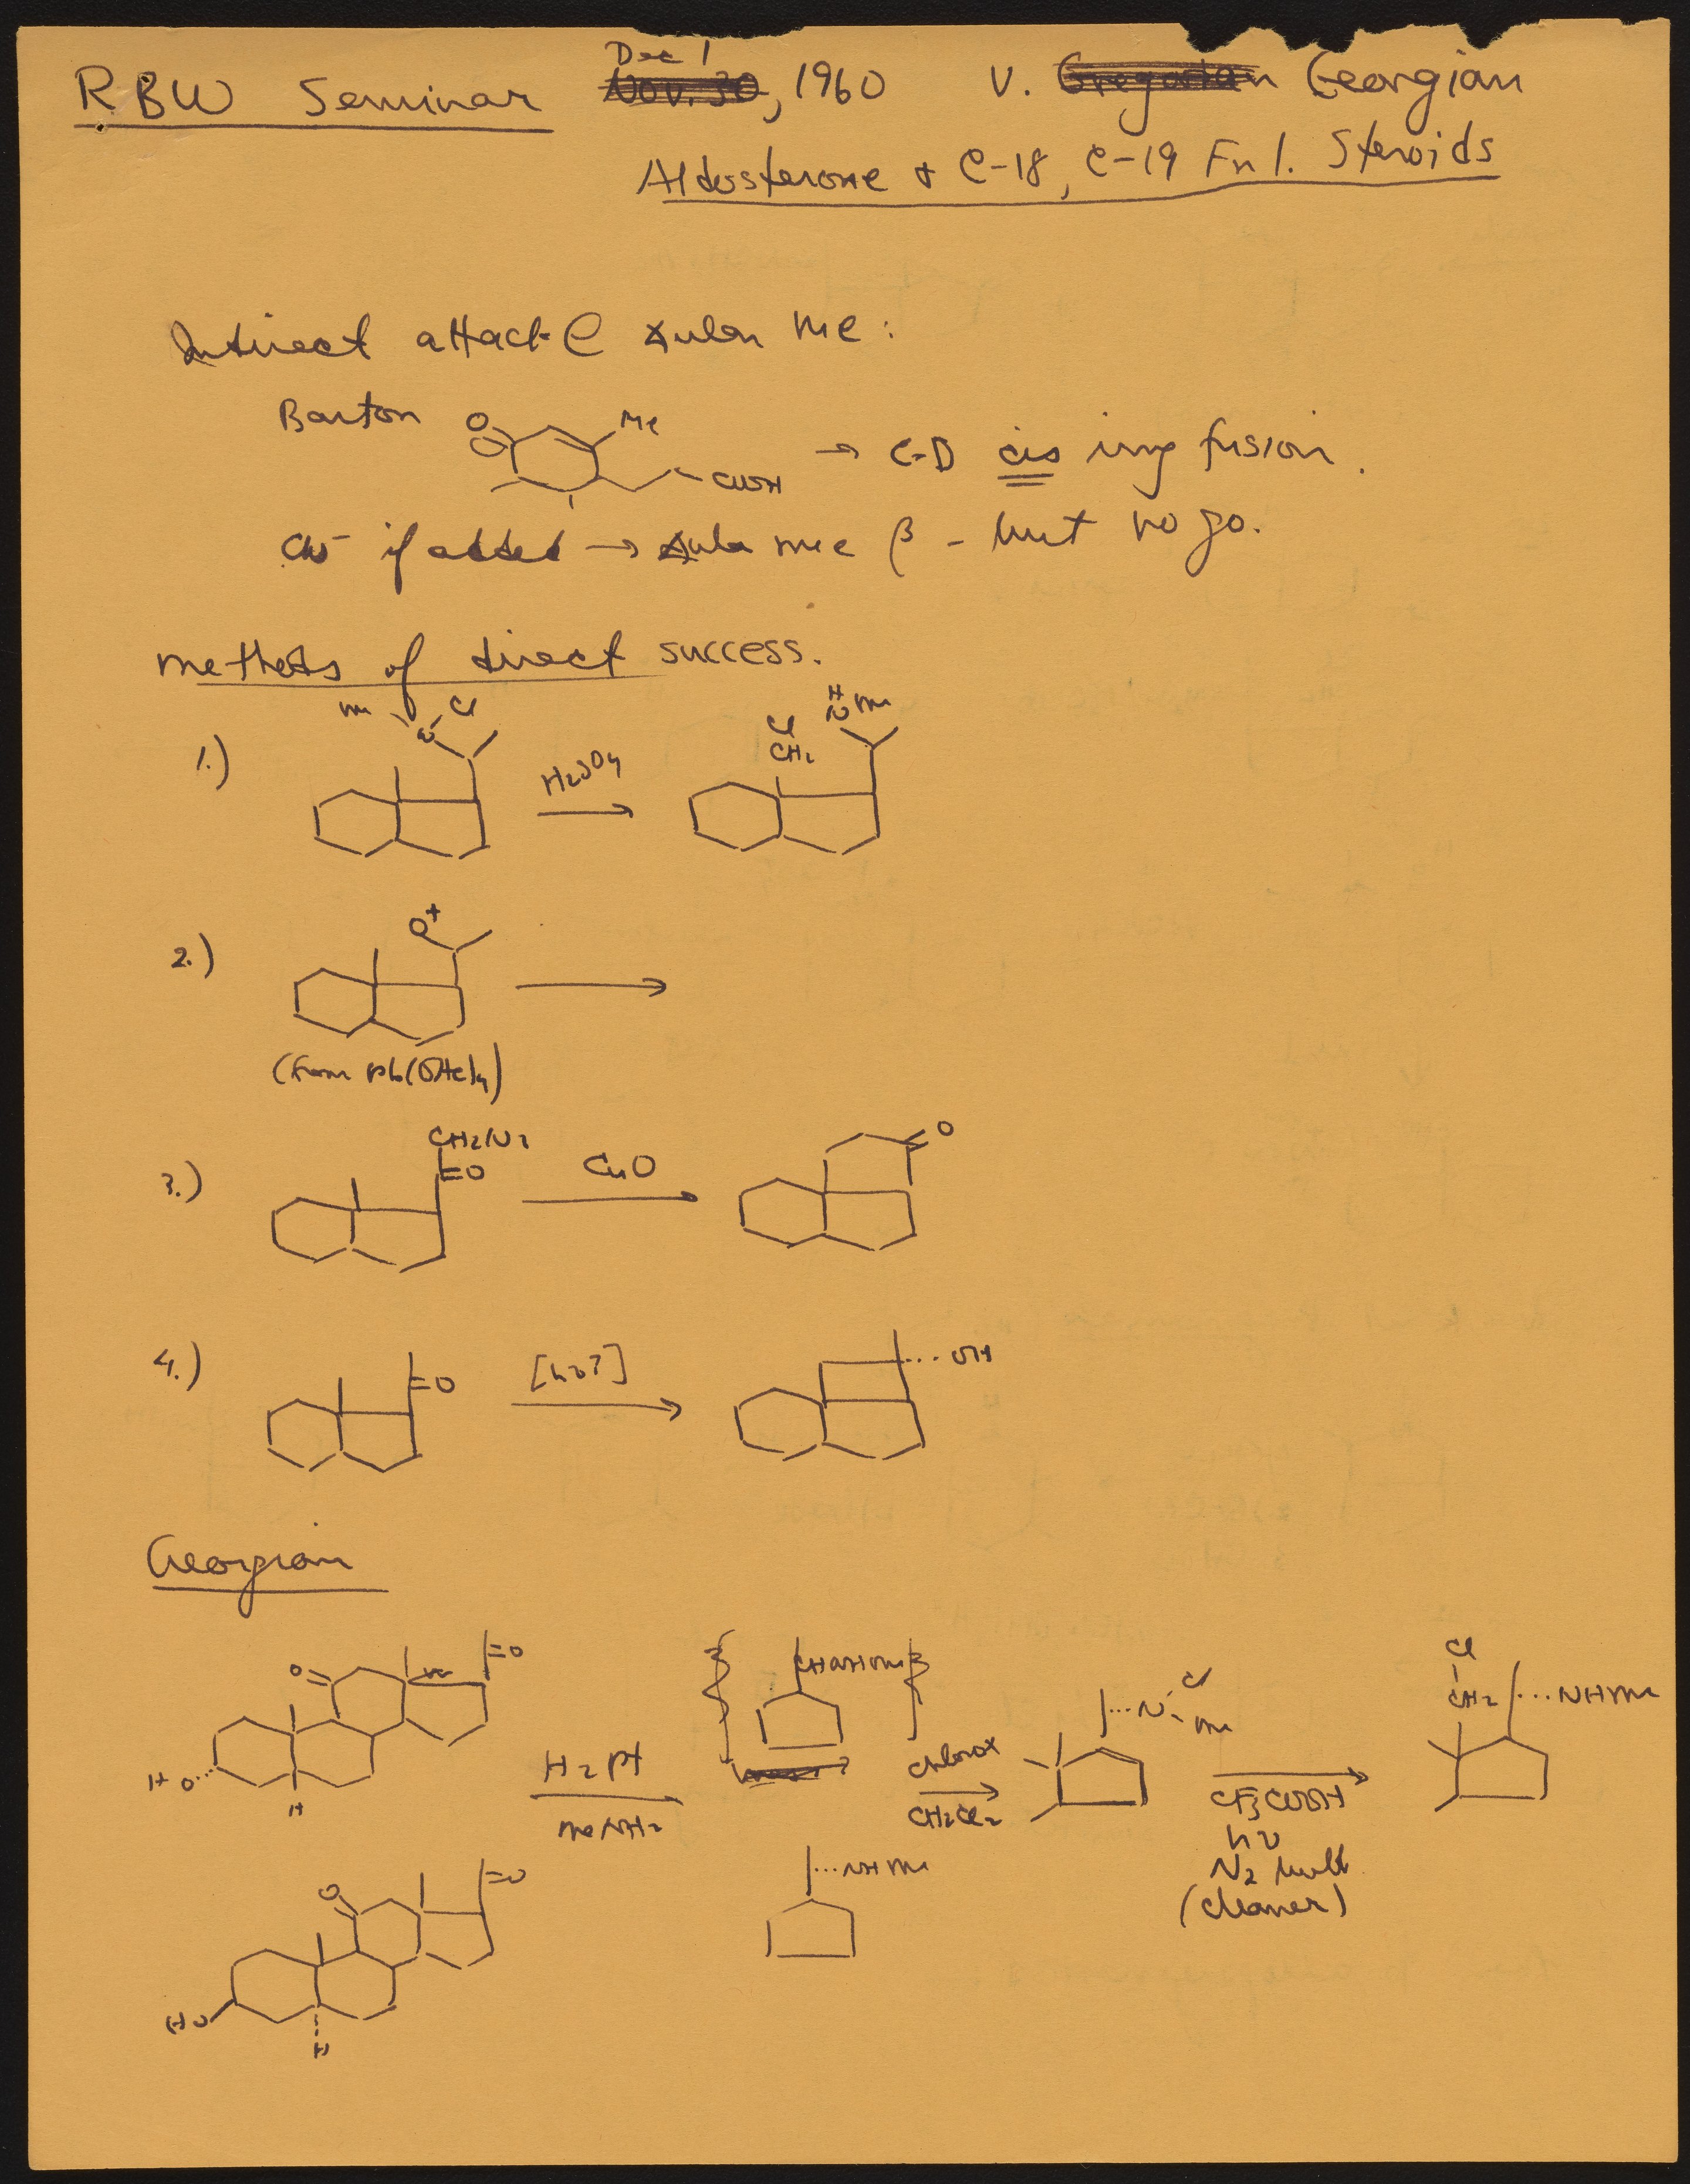 RBW Seminar Nov. 30, Dec 1, 1960 V. Gregorian Georgian
Aldosterone + C-18, C-19 Fnl. Steroids
Indirect attack @ ∡ular me:
Barton
O
Me
COOH
→ C-D cis ring fusion.
CN⁻ if added → ∡ular me β - but no go.
methods of direct success.
1.)
me
N
Cl
H2SO4
Cl
CH2
H
N me
2.)
O+
(from Pb(OAc)4)
3.)
CH2N2
=O
CuO
O
4.)
=O
[hν?]
...OH
Georgian
=O
O=
HO...
H
H2 Pt
MeNH2
Chlorox
CH2Cl2
...N
Cl
me
CF3COOH
hν
N2 bubb.
(cleaner)
Cl
CH2
...NHMe
=O
O
HO
H
...NHMe